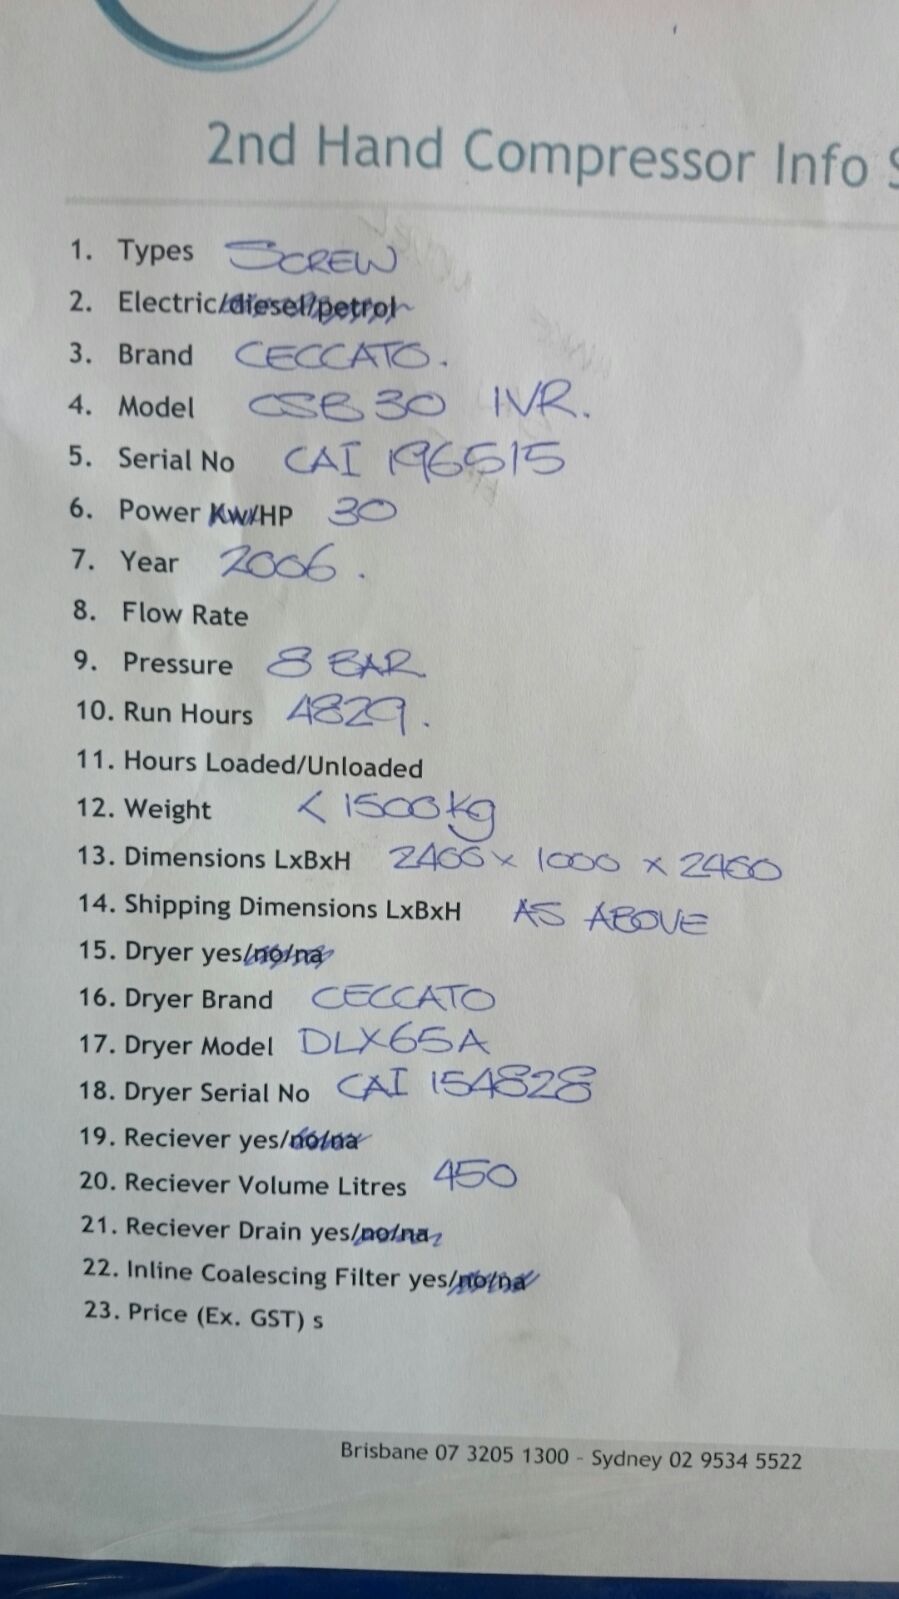 2nd Hand Compressor Info S
1. Types SCREW
2. Electric/diesel/petrol
3. Brand CECCATO.
4. Model CSB 30 IVR.
5. Serial No CAI 196515
6. Power Kw/HP 30
7. Year 2006.
8. Flow Rate
9. Pressure 8 BAR
10. Run Hours 4829.
11. Hours Loaded/Unloaded
12. Weight < 1500kg
13. Dimensions LxBxH 2400 x 1000 x 2400
14. Shipping Dimensions LxBxH AS ABOVE
15. Dryer yes/no/na
16. Dryer Brand CECCATO
17. Dryer Model DLX65A
18. Dryer Serial No CAI 154828
19. Reciever yes/no/na
20. Reciever Volume Litres 450
21. Reciever Drain yes/no/na
22. Inline Coalescing Filter yes/no/na
23. Price (Ex. GST) s
Brisbane 07 3205 1300 - Sydney 02 9534 5522